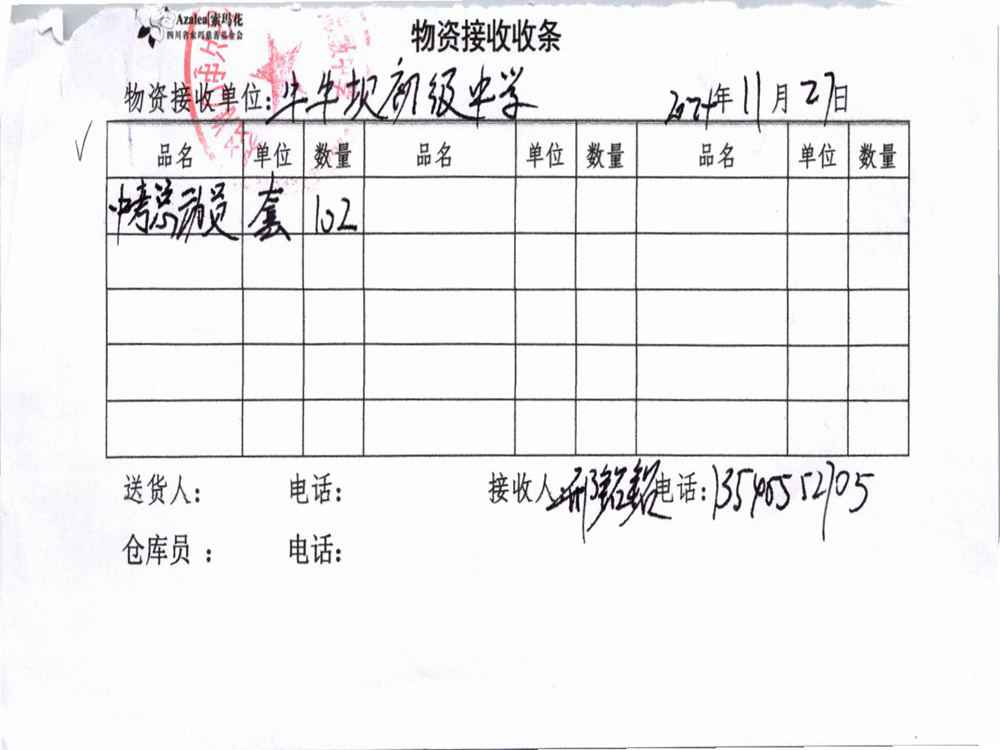 Azalea 索玛花
四川省索玛慈善基金会
物资接收收条
物资接收单位:牛牛坝初级中学 2024年11月27日
品名 单位 数量 品名 单位 数量 品名 单位 数量
中考总动员 套 102
送货人: 电话: 接收人 电话:
仓库员 : 电话: